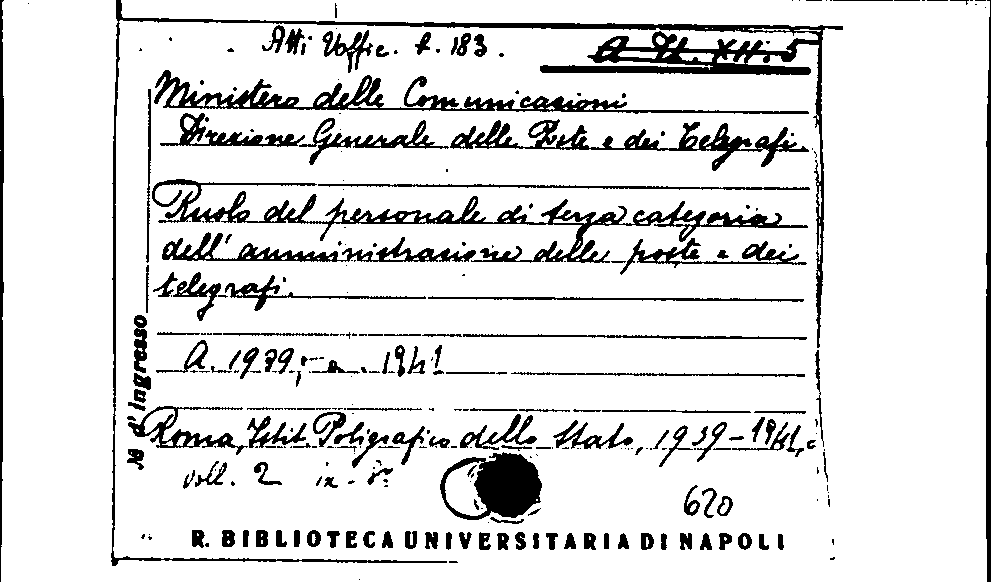 Atti Uffic. t. 183.
A VI. XII. 5
Ministero delle Comunicazioni
Direzione Generale delle Poste e dei Telegrafi.
Ruolo del personale di terza categoria
dell'amministrazione delle poste e dei
telegrafi.
A. 1939; - a. 1941
Roma, Istit. Poligrafico dello Stato, 1939-1941,
voll. 2 in-8°
620
№ d'Ingresso
R. BIBLIOTECA UNIVERSITARIA DI NAPOLI